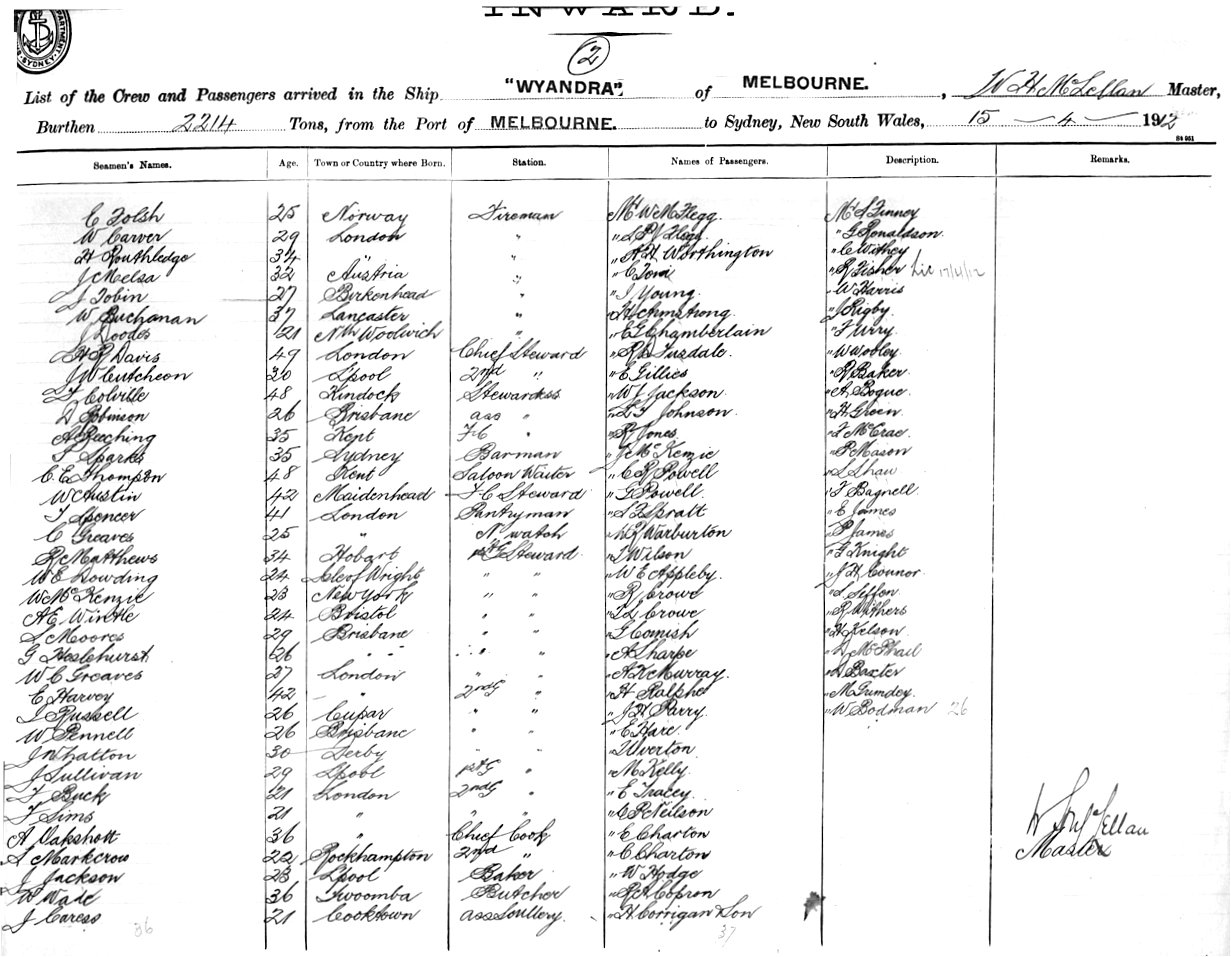 INWARD.
PARTMENT. SYDNEY
2
List of the Crew and Passengers arrived in the Ship "WYANDRA" of MELBOURNE. , W H McLellan Master,
Burthen 2214 Tons, from the Port of MELBOURNE. to Sydney, New South Wales, 15 - 4 - 1912
St 951
Seamen's Names. Age. Town or Country where Born. Station. Names of Passengers. Description. Remarks.
C Tolsh 25 Norway Fireman Mr W M Flegg. Mr S Finney
W Carver 29 London " " Flegg " G Ronaldson.
H Routhledge 34 " " " A H Worthington " C Withey
J Melsa 32 Austria " " C " R Fisher Lic 17/4/12
J Tobin 27 Birkenhead " " I Young " W Harris
W Buchanan 37 Lancaster " " H Armstrong. " J Rigby.
J Doodes 21 Nth Woolwich " " E G Chamberlain " F Urry.
H R Davis 49 London Chief Steward " R D Tuzdale. " W Wooley.
J W Cutcheon 20 Lpool 2nd " " E Gillies " R Baker
F Colville 48 Kindock Stewardess " W J Jackson. " A Bogue
D Robinson 26 Brisbane ass " " L F Johnson. " H Green.
A Beeching 35 Kent F C " " R Jones. " F McCrae.
T Sparks 35 Sydney Barman " J McKenzie " P Mason
C. E Thompson 48 Kent Saloon Waiter " C R Powell " S Shaw
W Austin 42 Maidenhead F C Steward " G Powell. " F Bagnell
T Spencer 41 London Pantryman " S F Spratt " E James
C Greaves 25 " N watch " W R Warburton " P James
R Matthews 34 Hobart 1st G Steward. " T Wilson " F Knight
W E Dowding 24 Isle of Wright " " " W E Appleby. " J H Connor.
W McKenzie 23 New York " " " R Crowe
A E Wintle 24 Bristol " " " T L Crowe " R Withers
S Moores 29 Brisbane " " " T Cornish " H Kelson
G Heslehurst 26 " " " " " A Sharpe " D McPhail
W C Greaves 27 London " " " A K Murray. " D Baxter
E Harvey 42 " 2nd G " " H Ralphe " M Gumdey.
T Russell 26 Cupar " " " J H Parry. " W Bodman 26
W Pennell 26 Brisbane " " " E Hare
J Whatton 30 Derby " " " Uverton
J Sullivan 29 Lpool 1st G " " M Kelly.
F Buck 21 London 2nd G " " E Tracey.
F Sims 21 " " C P Neilson
A Oakshott 36 " Chief Cook " E Charton
S Markcrow 22 Rockhampton 2nd " " C Charton
J Jackson 23 Lpool Baker " W Hodge
W Wade 36 Twoomba Butcher " R A Copron
J Caress 21 Cooktown ass Scullery. " H Corrigan & Son
36 37
W H McLellan
Master